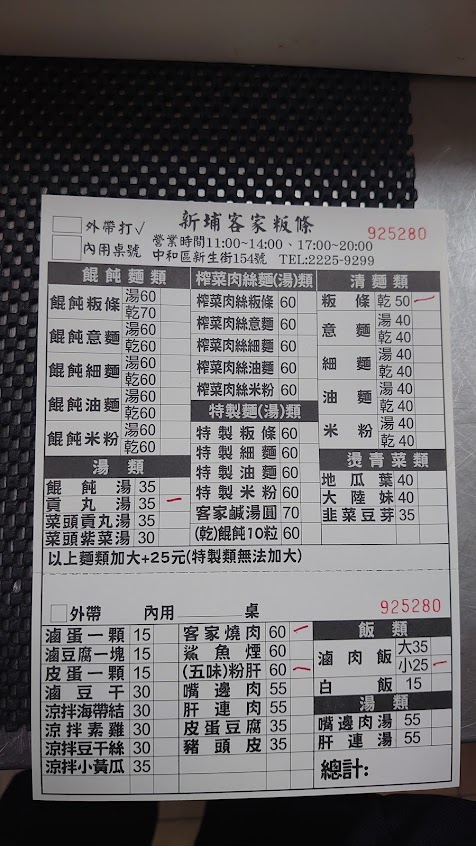 外帶打√
新埔客家粄條
925280
內用桌號
營業時間11:00~14:00、17:00~20:00
中和區新生街154號 TEL:2225-9299
餛飩麵類
餛飩粄條 湯60 乾70
餛飩意麵 湯60 乾60
餛飩細麵 湯60 乾60
餛飩油麵 湯60 乾60
餛飩米粉 湯60 乾60
湯類
餛飩湯 35
貢丸湯 35
菜頭貢丸湯 35
菜頭紫菜湯 30
榨菜肉絲麵(湯)類
榨菜肉絲粄條 60
榨菜肉絲意麵 60
榨菜肉絲細麵 60
榨菜肉絲油麵 60
榨菜肉絲米粉 60
特製麵(湯)類
特製粄條 60
特製細麵 60
特製油麵 60
特製米粉 60
客家鹹湯圓 70
(乾)餛飩10粒 60
清麵類
粄條 乾 50
意麵 湯 40 乾 40
細麵 湯 40 乾 40
油麵 湯 40 乾 40
米粉 湯 40 乾 40
燙青菜類
地瓜葉 40
大陸妹 40
韭菜豆芽 35
以上麵類加大+25元(特製類無法加大)
外帶 內用 桌
925280
滷蛋一顆 15
滷豆腐一塊 15
皮蛋一顆 15
滷豆干 30
涼拌海帶結 30
涼拌素雞 30
涼拌豆干絲 30
涼拌小黃瓜 35
客家燒肉 60
鯊魚煙 60
(五味)粉肝 60
嘴邊肉 55
肝連肉 55
皮蛋豆腐 35
豬頭皮 35
飯類
滷肉飯 大35 小25
白飯 15
湯類
嘴邊肉湯 55
肝連湯 55
總計: